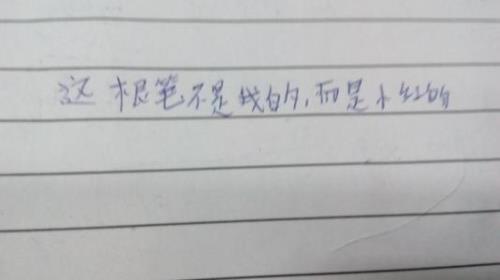 这根笔不是我的,而是小红的